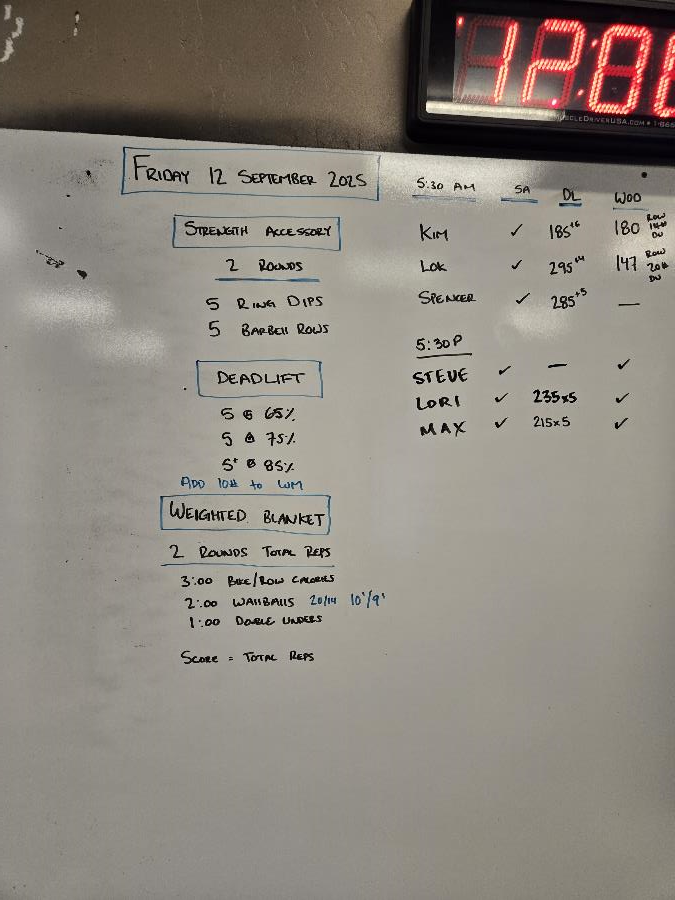 12:00
MUSCLEDRIVERUSA.COM • 1-866
FRIDAY 12 SEPTEMBER 2025
STRENGTH ACCESSORY
2 ROUNDS
5 RING DIPS
5 BARBELL ROWS
DEADLIFT
5 @ 65%
5 @ 75%
5+ @ 85%
ADD 10# to WM
WEIGHTED BLANKET
2 ROUNDS TOTAL REPS
3:00 BIKE/ROW CALORIES
2:00 WALLBALLS 20/14 10'/9'
1:00 DOUBLE UNDERS
SCORE = TOTAL REPS
5:30 AM SA DL WOD
KIM ✓ 185 x16 180 ROW 14# DU
LOK ✓ 295 x14 147 ROW 20# DU
SPENCER ✓ 285 x5 —
5:30P
STEVE ✓ — ✓
LORI ✓ 235x5 ✓
MAX ✓ 215x5 ✓